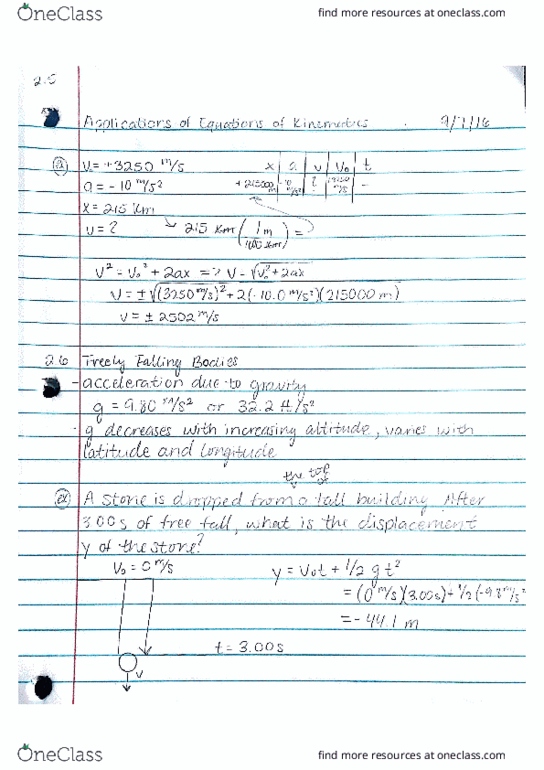 OneClass
find more resources at oneclass.com
2.5
Applications of Equations of Kinematics 9/7/16
ex v = +3250 m/s x a v v₀ t
a = -10 m/s² +215000 m -10 m/s² ? +3250 m/s -
x = 215 km
v = ? → 215 km =
v² = v₀² + 2ax => v = √v₀² + 2ax
v = ±√(3250 m/s)² + 2(-10.0 m/s²)(215000 m)
v = ± 2502 m/s
2.6 Freely Falling Bodies
- acceleration due to gravity
g = 9.80 m/s² or 32.2 ft/s²
- g decreases with increasing altitude, varies with
latitude and longitude
the top of
ex A stone is dropped from a tall building. After
3.00s of free fall, what is the displacement
y of the stone?
V₀ = 0 m/s y = v₀t + 1/2 gt²
= (0 m/s)(3.00s) + 1/2 (-9.8 m/s²
= - 44.1 m
t = 3.00s
v
OneClass
find more resources at oneclass.com